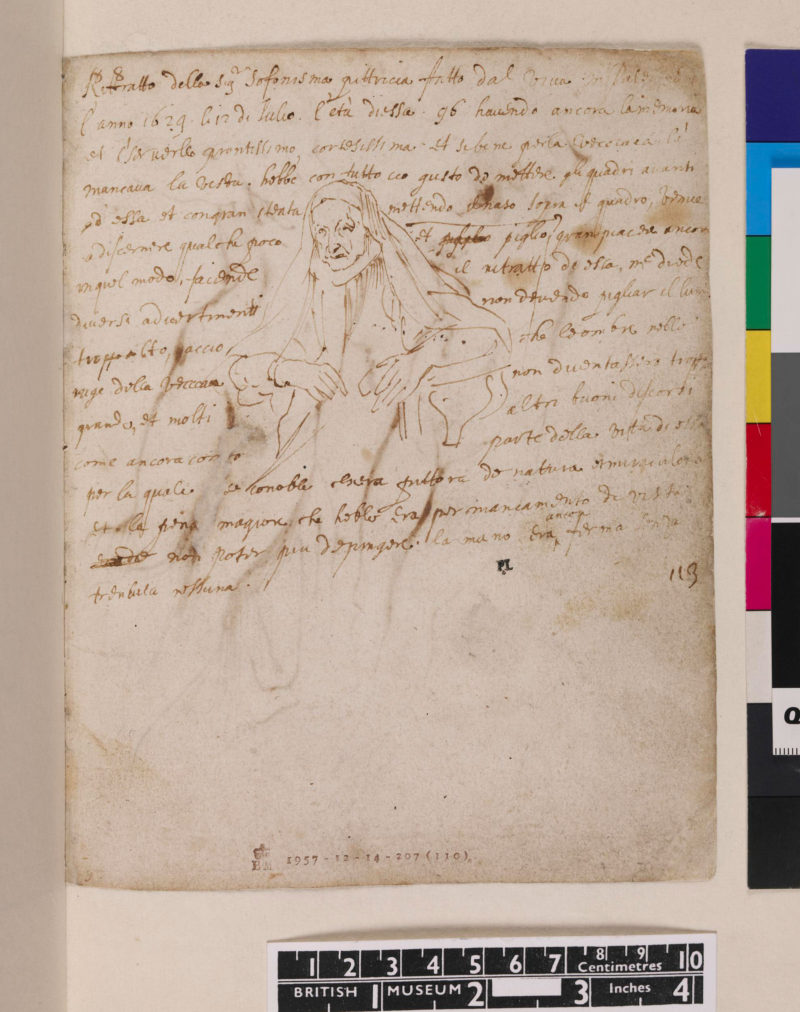 Rittratto della Sig.ra Sofonisma pittricia fatto dal vivo in Palermo
l'anno 1624 li 12 di Julio l'età di essa 96 havendo ancora la memoria
et il serverllo prontissimo, cortesissima et sebene per la vecciaia li
mancava la vista hebbe con tutto cio gusto de mettere gli quadri avanti
ad essa et con gran stenta mettendo il naso sopra il quadro, venne
a discernere qualche poco et piglio gran piacere ancora
in quel modo, facendo il ritratto de essa, me diede
diversi advertimenti non devendo pigliar il lume
troppo alto, accio che le ombre nelle
ruge della vecciaia non diventassero troppo
grande, et molti altri buoni discorsi
come ancora conto parte della vita di essa
per la quale se conobbe ch'era pittora de natura et miraculosa
et la pena magiore che hebbe era per mancamento di vista
non poter piu depingere. la mano era ancora ferma senza
tremula nessuna.
PL
113
1957-12-14-207(110)
1 2 3 4 5 6 7 8 9 10
Centimetres
BRITISH 1 MUSEUM 2 3 Inches 4